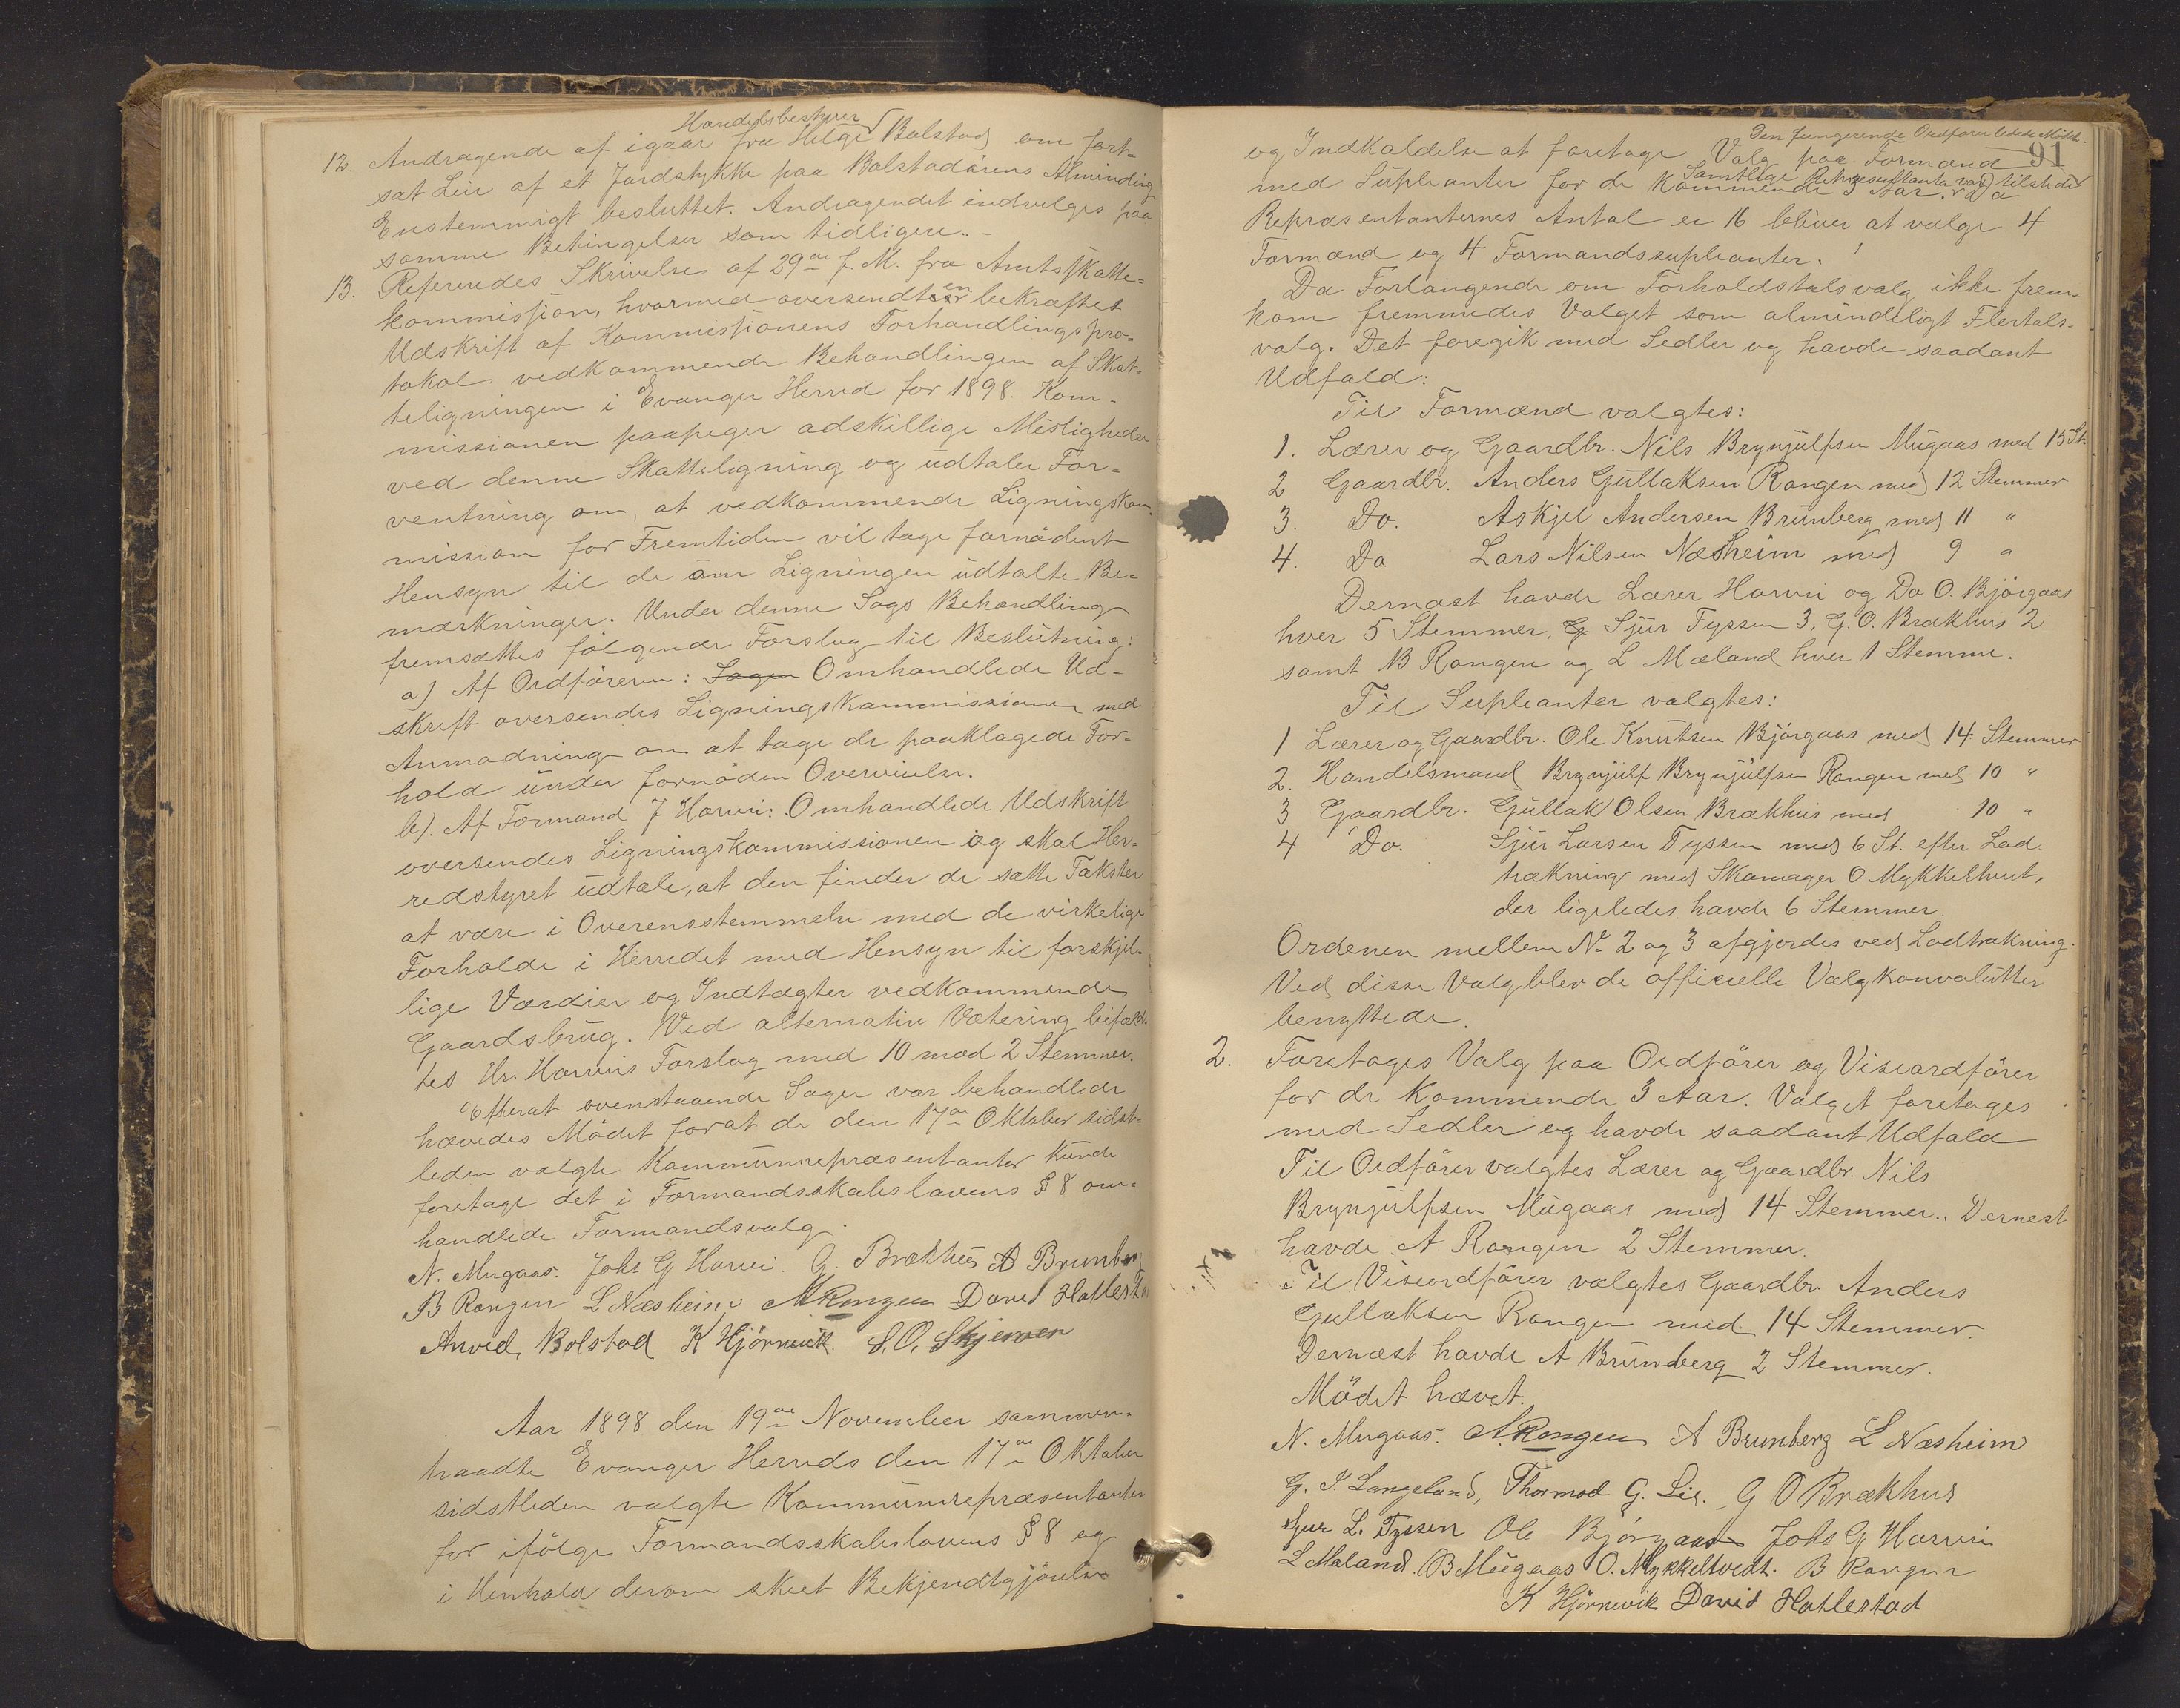 Handelsbestyrer
12. Andragende af igaar fra Helge Bolstad om fort-
sat Leie af et Jordstykke paa Bolstadörens Alminding
Enstemmigt besluttet. Andragendet indvilges paa
samme Betingelser som tidligere.
13. Refereredes Skrivelse af 29de f. M. fra Amtsskatte-
kommission, hvormed oversendtes en bekræftet
Udskrift af Kommissionens Forhandlingspro-
tokol vedkommende Behandlingen af Skat-
teligningen i Evanger Herred for 1898. Kom-
missionen paapeger adskillige Misligheder
ved denne Skatteligning og udtaler For-
ventning om, at vedkommende Ligningskom-
mission for Fremtiden vil tage fornödent
Hensyn til de om Ligningen udtalte Be-
mærkninger. Under denne Sags Behandling
fremsattes fölgende Forslag til Beslutning:
a) Af Ordföreren: Sagen Omhandlede Ud-
skrift oversendes Ligningskommissionen med
Anmodning om at tage de paaklagede For-
hold under fornöden Overveielse.
b). Af Formand J Horvei: Omhandlede Udskrift
oversendes Ligningskommissionen og skal Her-
redstyret udtale, at den finder de satte Takster
at være i Overensstemmelse med de virkelige
Forholde i Herredet med Hensyn til forskjel-
lige Værdier og Indtægter vedkommende
Gaardsbrug. Ved alternativ Votering bifald-
tes Hr. Horveis Forslag med 10 mod 2 Stemmer.
Efterat ovenstaaende Sager var behandlede
hævedes Mödet forat de den 17de Oktober sidst-
leden valgte Kommunerepræsentanter kunde
foretage det i Formandsskabslovens § 8 om-
handlede Formandsvalg.
N. Mugaas. Johs G Horvei. G. Brækhus A Brunberg
B Rongen L Næsheim ARongen David Hatlestad
Anved, Bolstad K Hjörnevik. S. O. Skjerven
Aar 1898 den 19de November sammen-
traadte Evanger Herreds den 17de Oktober
sidstleden valgte Kommunerepræsentanter
for ifölge Formandsskabslovens § 8 og
i Henhold derom skeet Bekjendtgjörelse
Den fungerende Ordförer ledede Mödet.
91
og Indkaldelse at foretage Valg paa Formænd
Samtlige Repræsentanter var tilstede
med Supleanter for de kommende 3 Aar. Da
Repræsentanternes Antal er 16 bliver at vælge 4
Formænd og 4 Formandssupleanter.
Da Forlangende om Forholdstalsvalg ikke frem-
kom fremmedes Valget som almindeligt Flertals-
valg. Det foregik med Sedler og havde saadant
Udfald:
Til Formænd valgtes:
1. Lærer og Gaardbr. Nils Brynjulfsen Mugaas med 15 St.
2 Gaardbr. Anders Gullaksen Rongen med 12 Stemmer
3. Do. Askjel Andersen Brunberg med 11 "
4. Do Lars Nilsen Næsheim med 9 "
Dernæst havde Lærer Horvei og Do O. Björgaas
hver 5 Stemmer, G Sjur Fyssen 3, G. O. Brækhus 2
samt B Rongen og L Mæland hver 1 Stemme.
Til Supleanter valgtes:
1 Lærer og Gaardbr. Ole Knutsen Björgaas med 14 Stemmer
2. Handelsmand Brynjulf Brynjulfsen Rongen med 10 "
3 Gaardbr. Gullak Olsen Brækhus med 10 "
4 Do. Sjur Larsen Fyssen med 6 St. efter Lod-
trækning med Skomager O Mykkeltveit,
der ligeledes havde 6 Stemmer.
Ordenen mellem No 2 og 3 afgjordes ved Lodtrækning.
Ved disse Valg blev de officielle Valgkonvolutter
benyttede.
2. Foretages Valg paa Ordförer og Viseordförer
for de kommende 3 Aar. Valget foretages
med Sedler og havde saadant Udfald
Til Ordförer valgtes Lærer og Gaardbr. Nils
Brynjulfsen Mugaas med 14 Stemmer. Dernest
havde A Rongen 2 Stemmer.
Til Viseordförer valgtes Gaardbr. Anders
Gullaksen Rongen med 14 Stemmer.
Dernæst havde A Brunberg 2 Stemmer.
Mödet hævet.
N. Mugaas. A.Rongen A Brunberg L Næsheim
G. I. Langeland, Thormod G. Lie. G O Brækhus
Sjur L. Fyssen Ole Björgaas Johs G Horvei
L Mæland. B Mugaas O. Mykkeltvedt. B Rongen
K Hjörnevik David Hatlestad